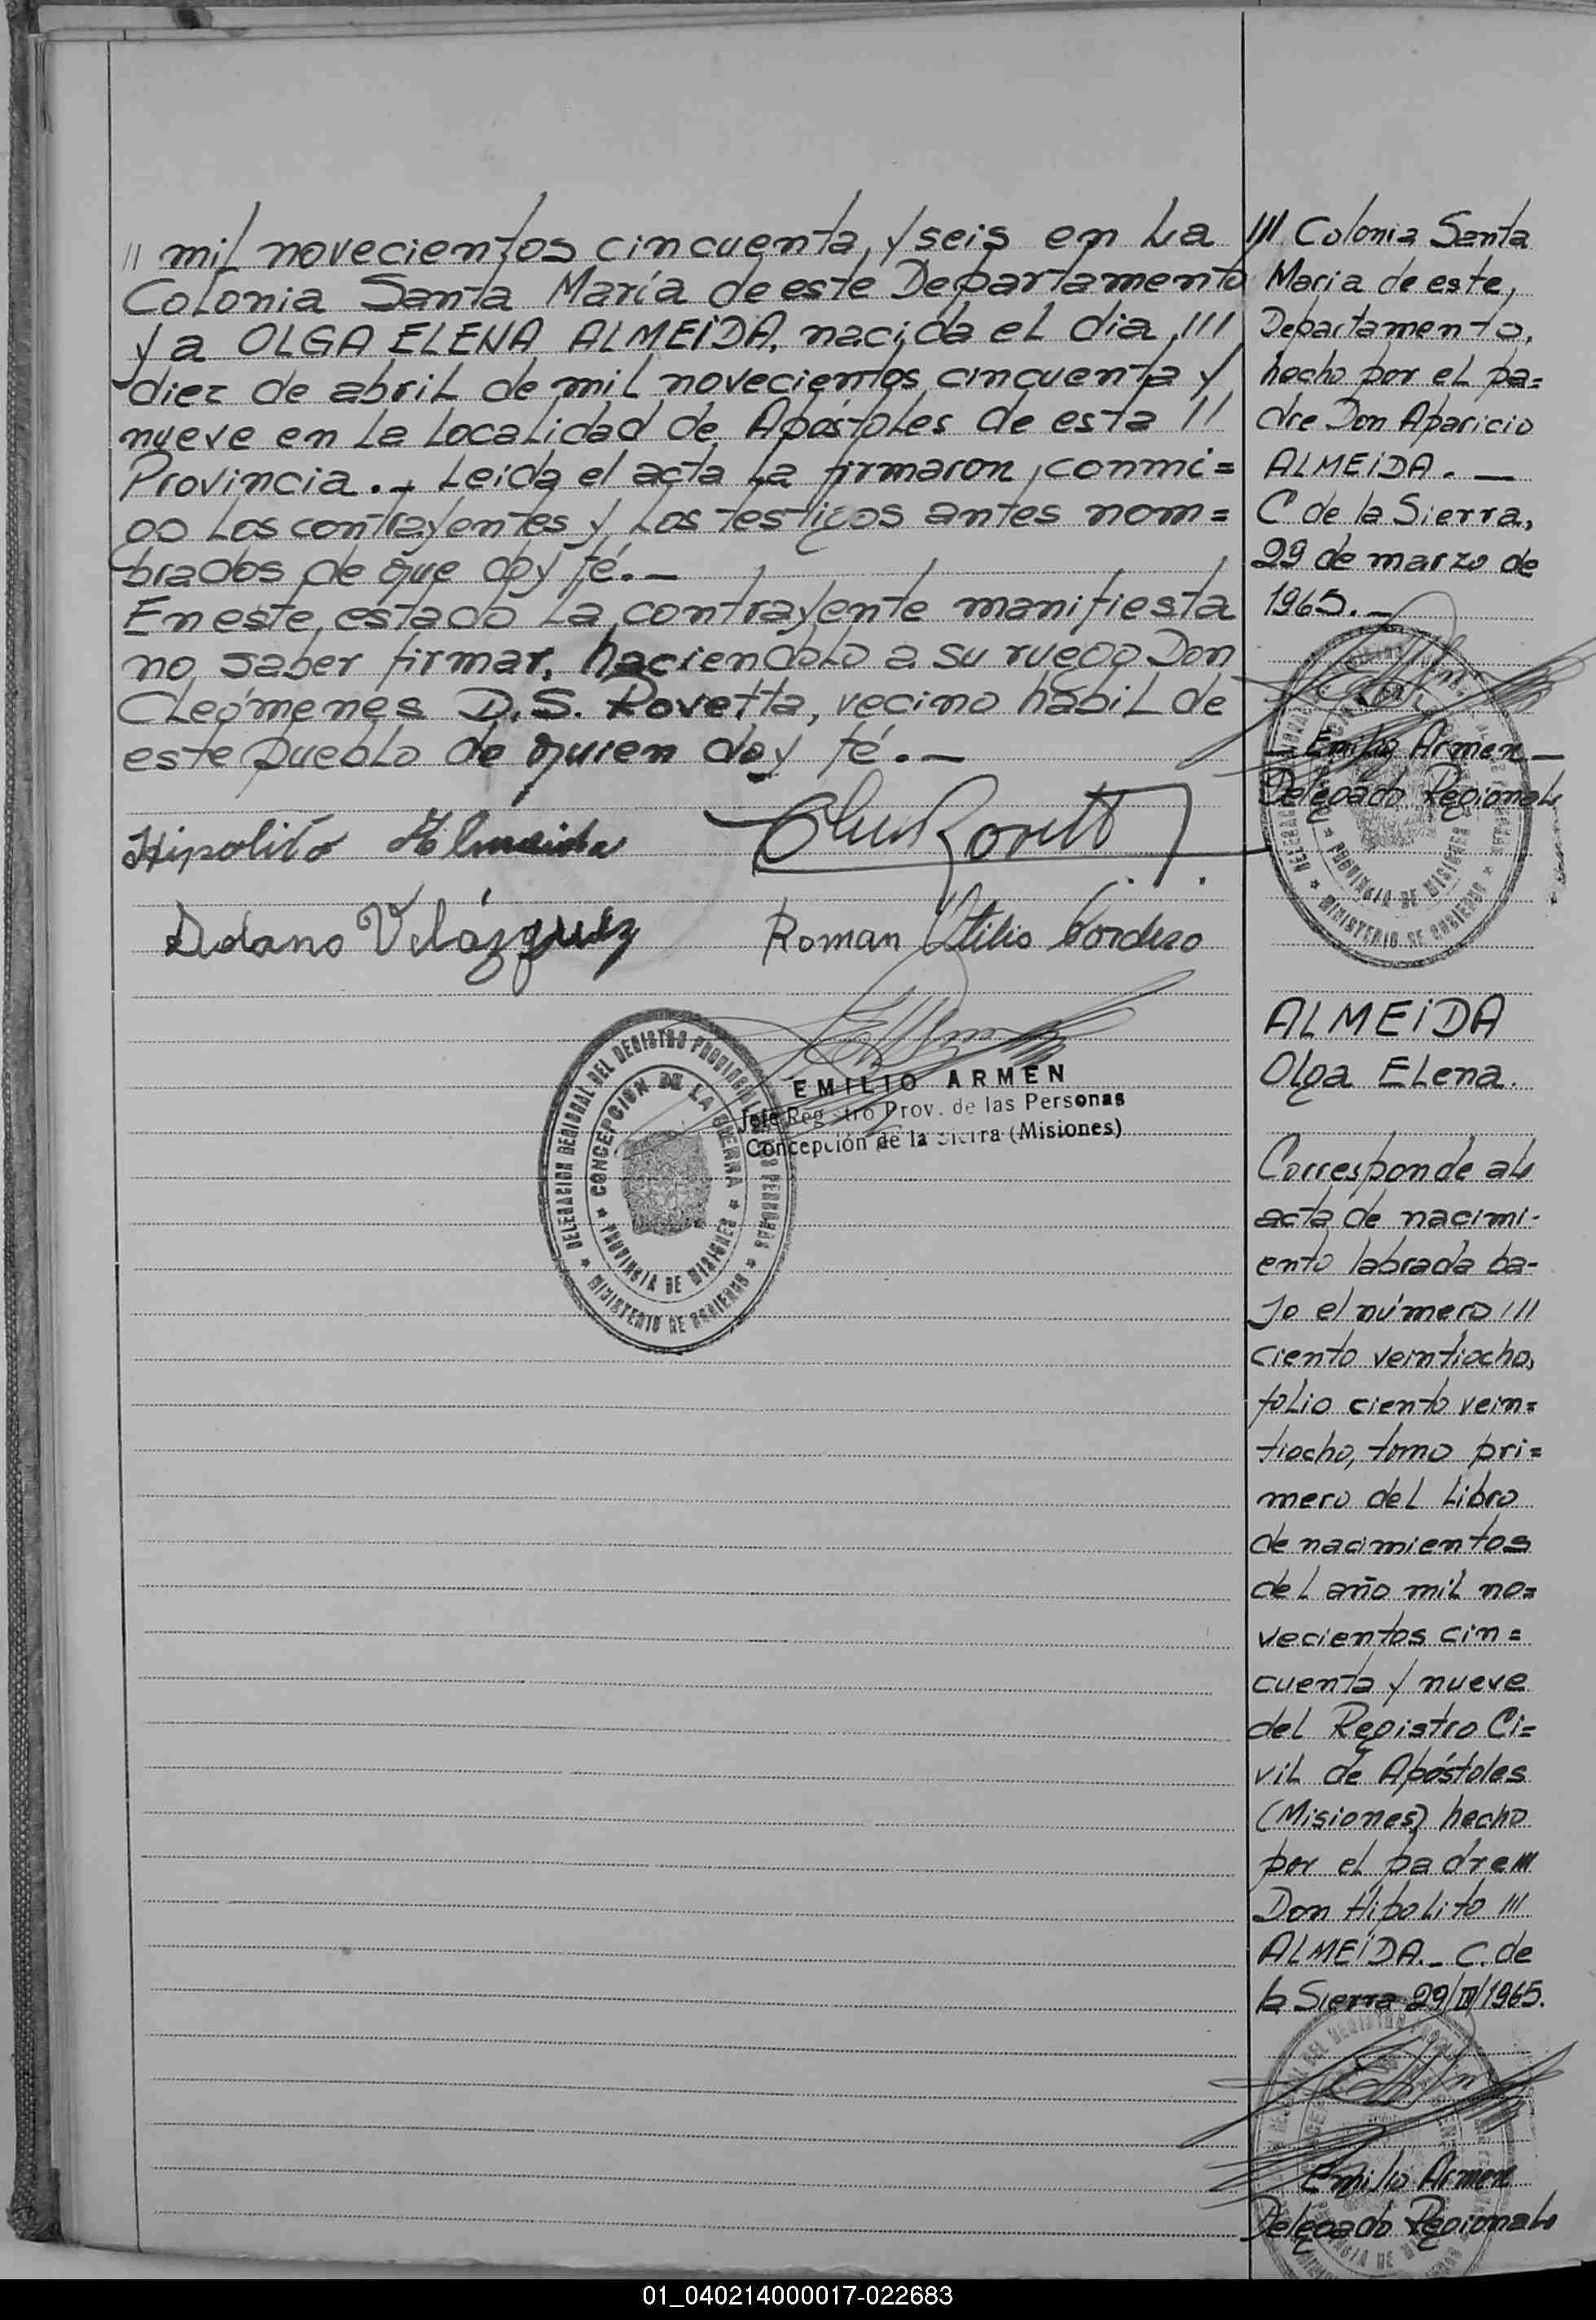 // mil novecientos cincuenta y seis en La
Colonia Santa María de este Departamento
y a OLGA ELENA ALMEIDA, nacida el dia ///
diez de abril de mil novecientos cincuenta y
nueve en La Localidad de Apóstoles de esta //
Provincia._ Leida el acta La firmaron conmi=
go Los contrayentes y Los testigos antes nom=
brados de que doy fé._
En este estado La contrayente manifiesta
no saber firmar, haciendolo a su ruego Don
Cleómenes D.S. Rovetta, vecino hábil de
este pueblo de quien doy fé._
Hipolito Almeida
Velázquez Roman Atilio Cordero
EMILIO ARMEN
Jefe Registro Prov. de las Personas
Concepción de la Sierra (Misiones)
DELEGACION REGIONAL DEL REGISTRO PROVINCIAL DE LAS PERSONAS
CONCEPCION DE LA SIERRA
PROVINCIA DE MISIONES
MINISTERIO DE GOBIERNO
/// Colonia Santa
Maria de este
Departamento,
hecho por el pa=
dre Don Aparicio
ALMEIDA._
C de la Sierra,
29 de marzo de
1965._
Emilio Armen
Delegado Regional
PROVINCIA DE MISIONES
MINISTERIO DE GOBIERNO
ALMEIDA
Olga Elena.
Corresponde al
acta de nacimi-
ento labrada ba-
jo el número ///
ciento veintiocho,
folio ciento vein=
tiocho, tomo pri=
mero del Libro
de nacimientos
del año mil no=
vecientos cin=
cuenta y nueve
del Registro Ci=
vil de Apóstoles
(Misiones) hecho
por el padre ///
Don Hipolito ///
ALMEIDA._ C. de
la Sierra 29/III/1965.
Emilio Armen
Delegado Regional
01_040214000017-022683